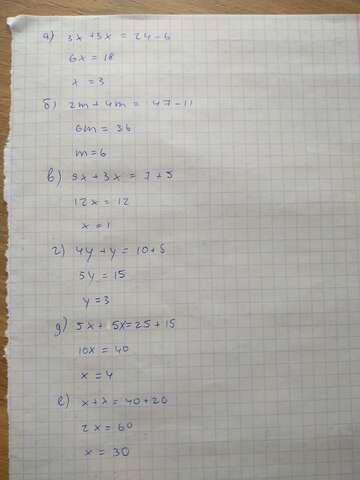 а) 3x + 3x = 24 - 6
6x = 18
x = 3
б) 2m + 4m = 47 - 11
6m = 36
m = 6
в) 9x + 3x = 7 + 5
12x = 12
x = 1
г) 4y + y = 10 + 5
5y = 15
y = 3
д) 5x + 5x = 25 + 15
10x = 40
x = 4
е) x + x = 40 + 20
2x = 60
x = 30